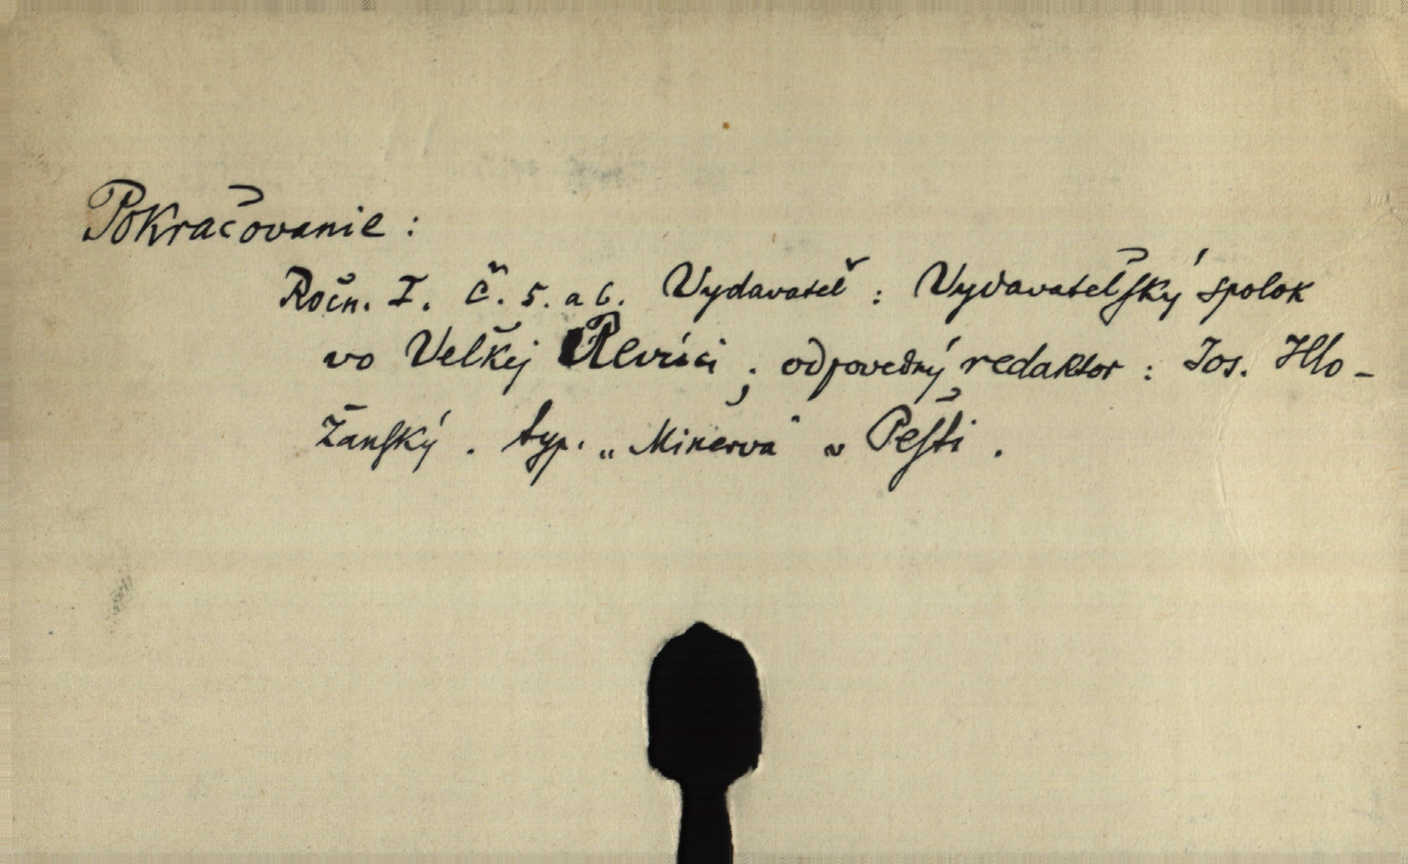 Pokračovanie :
Ročn. I. č. 5. a 6. Vydavateľ : Vydavateľský spolok
vo Veľkej Revúci ; odpovedný redaktor : Jos. Hlo-
žanský . typ. „Minerva“ v Pešti .